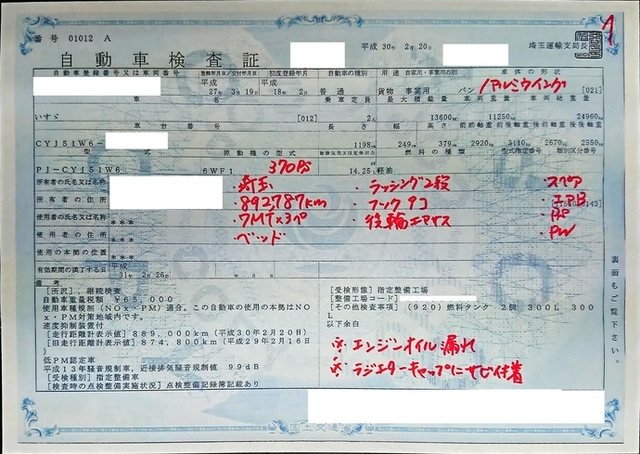 番号 01012 A
1
自動車検査証
平成 30年 2月20日
埼玉運輸支局長
自動車登録番号又は車両番号 登録年月日/交付年月日 初度登録年月 自動車の種別 用途 自家用・事業用の別 車体の形状
平成 27年 3月19日 平成 18年 2月 普通 貨物 事業用 バン アルミウイング [021]
車名 乗車定員 最大積載量 車両重量 車両総重量
いすゞ [012] 2人 13600kg 11250kg 24960kg
車台番号 長さ 幅 高さ 前前軸重 前後軸重 後前軸重 後後軸重
CYJ51W6- 1198cm 249cm 379cm 2920kg 3110kg 2670kg 2550kg
型式 原動機の型式 総排気量又は定格出力 燃料の種類 型式指定番号 類別区分番号
PJ-CYJ51W6 6WF1 370PS 14.25L 軽油
所有者の氏名又は名称 ・埼玉 ・ラッシング2段 ・スペア
所有者の住所 ・892,787km ・フック9コ ・エアB
使用者の氏名又は名称 *** ・7MT×3ペ ・後輪エアサス
使用者の住所 *** ・ベッド ・PW
使用の本拠の位置 ***
有効期間の満了する日 平成 31年 2月26日
裏面もご覧下さい。
備考
[所沢], 継続検査
自動車重量税額 ¥65,000
使用車種規制(NOx・PM)適合。この自動車の使用の本拠はNO
x・PM対策地域内です。
速度抑制装置付
[走行距離計表示値] 889,000km (平成30年2月20日)
[旧走行距離計表示値] 874,800km (平成29年2月16日)
低PM認定車
平成13年騒音規制車、近接排気騒音規制値 99dB
[受検種別] 指定整備車
[検査時の点検整備実施状況] 点検整備記録簿記載あり
[受検形態] 指定整備工場
[整備工場コード]
[その他検査事項] (920) 燃料タンク 2個 300L, 300
L
以下余白
※エンジンオイル漏れ
※ラジエターキャップにサビ付着
国土交通省